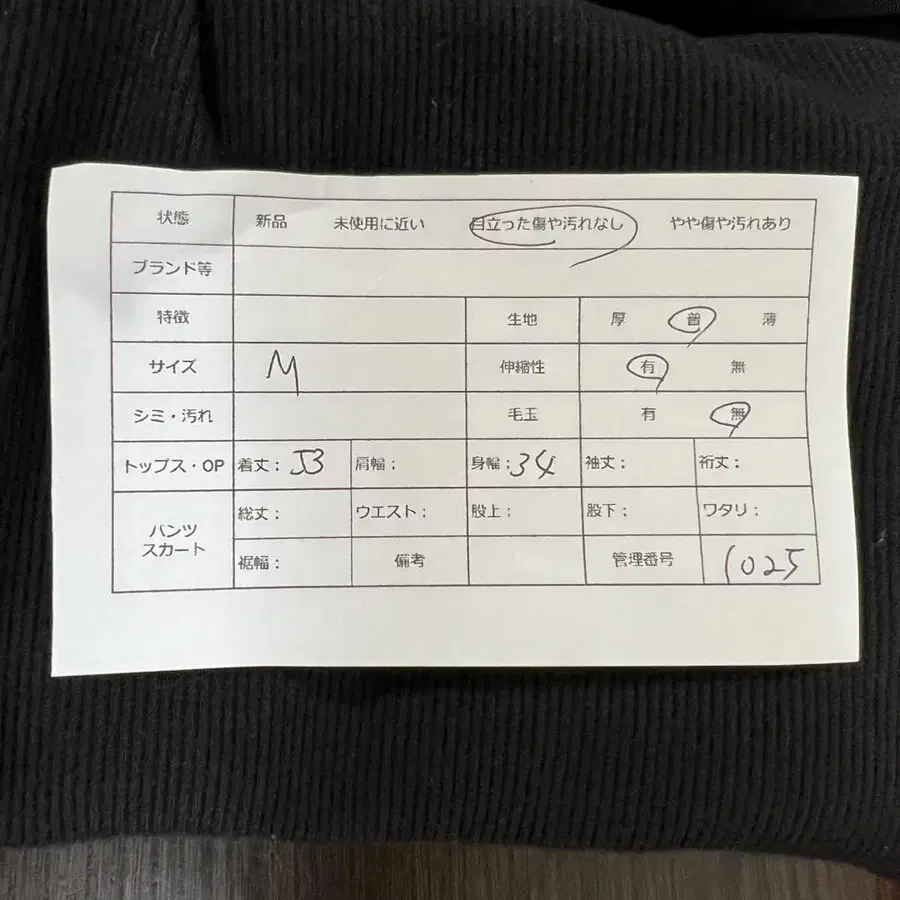 状態 新品 未使用に近い 目立った傷や汚れなし やや傷や汚れあり
ブランド等
特徴 生地 厚 普 薄
サイズ M 伸縮性 有 無
シミ・汚れ 毛玉 有 無
トップス・OP 着丈: 53 肩幅: 身幅: 34 袖丈: 裄丈:
パンツ
スカート
総丈: ウエスト: 股上: 股下: ワタリ:
裾幅: 備考 管理番号 1025